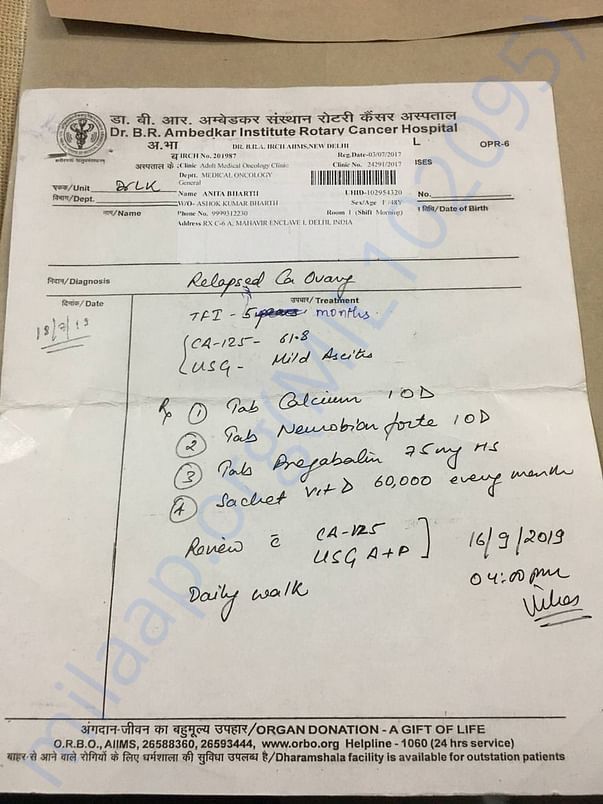 डा. बी. आर. अम्बेडकर संस्थान रोटरी कैंसर अस्पताल
Dr. B.R. Ambedkar Institute Rotary Cancer Hospital
अ.भा
DR. B.R.A. IRCH AIIMS, NEW DELHI
L
OPR-6
IRCH No. 201987
Reg.Date-03/07/2017
ISES
अस्पताल के
Clinic Adult Medical Oncology Clinic
Clinic No. 24291/2017
Deptt. MEDICAL ONCOLOGY
General
एकक/Unit Dr LK
विभाग/Dept.
Name ANITA BHARTH
UHID-102954320
No.
W/O- ASHOK KUMAR BHARTH
Sex/Age F /48Y
नाम/Name
Phone No. 9999312230
Room 1 (Shift Morning)
तिथि/Date of Birth
Address RX C-6 A, MAHAVIR ENCLAVE I, DELHI, INDIA
निदान/Diagnosis Relapsed Ca Ovary
दिनांक/Date
उपचार/Treatment
TFI - 5 months.
CA-125 - 61.8
USG - Mild Ascites
Rx ① Tab Calcium 1 OD
② Tab Neurobion forte 1 OD
③ Tab Pregabalin 75mg HS
④ Sachet Vit D 60,000 every month
Review c̄ CA-125
USG A+P ] 16/9/2019
04:00 pm
Daily walk
अंगदान-जीवन का बहुमूल्य उपहार/ORGAN DONATION - A GIFT OF LIFE
O.R.B.O., AIIMS, 26588360, 26593444, www.orbo.org Helpline - 1060 (24 hrs service)
बाहर से आने वाले रोगियों के लिए धर्मशाला की सुविधा उपलब्ध है/Dharamshala facility is available for outstation patients
milaap.org/(MIL1020957)